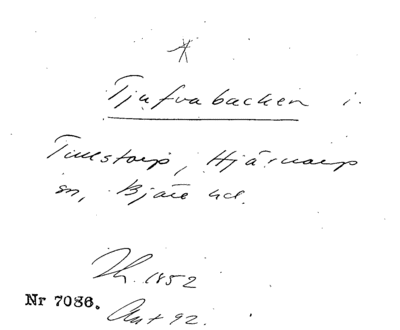 Tjufvabacken i
Tullstorp, Hjärnarp
sn, Bjäre hd.
Th. 1852
Nr 7086.
Ant 92.